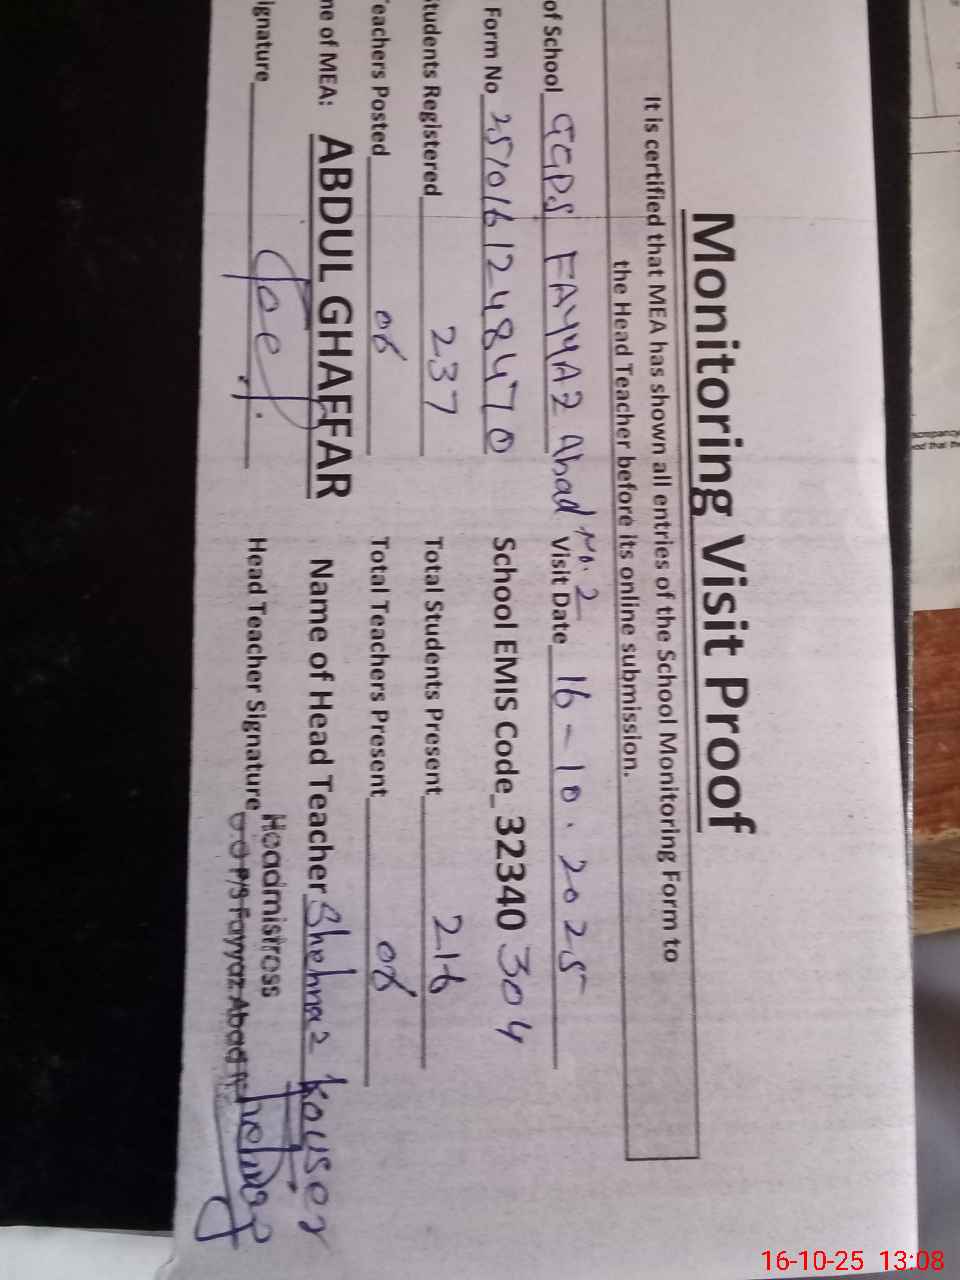 Monitoring Visit Proof
It is certified that MEA has shown all entries of the School Monitoring Form to
the Head Teacher before its online submission.
of School GGPS FAYYAZ Abad No. 2 Visit Date 16-10.2025
Form No 251016124847 0 School EMIS Code_32340304
Students Registered 237 Total Students Present 216
eachers Posted 08 Total Teachers Present 08
me of MEA: ABDUL GHAFFAR Name of Head Teacher Shehnaz Kouser
ignature Head Teacher Signature
Headmistress
G.G P/S Fayyaz Abad
16-10-25 13:08